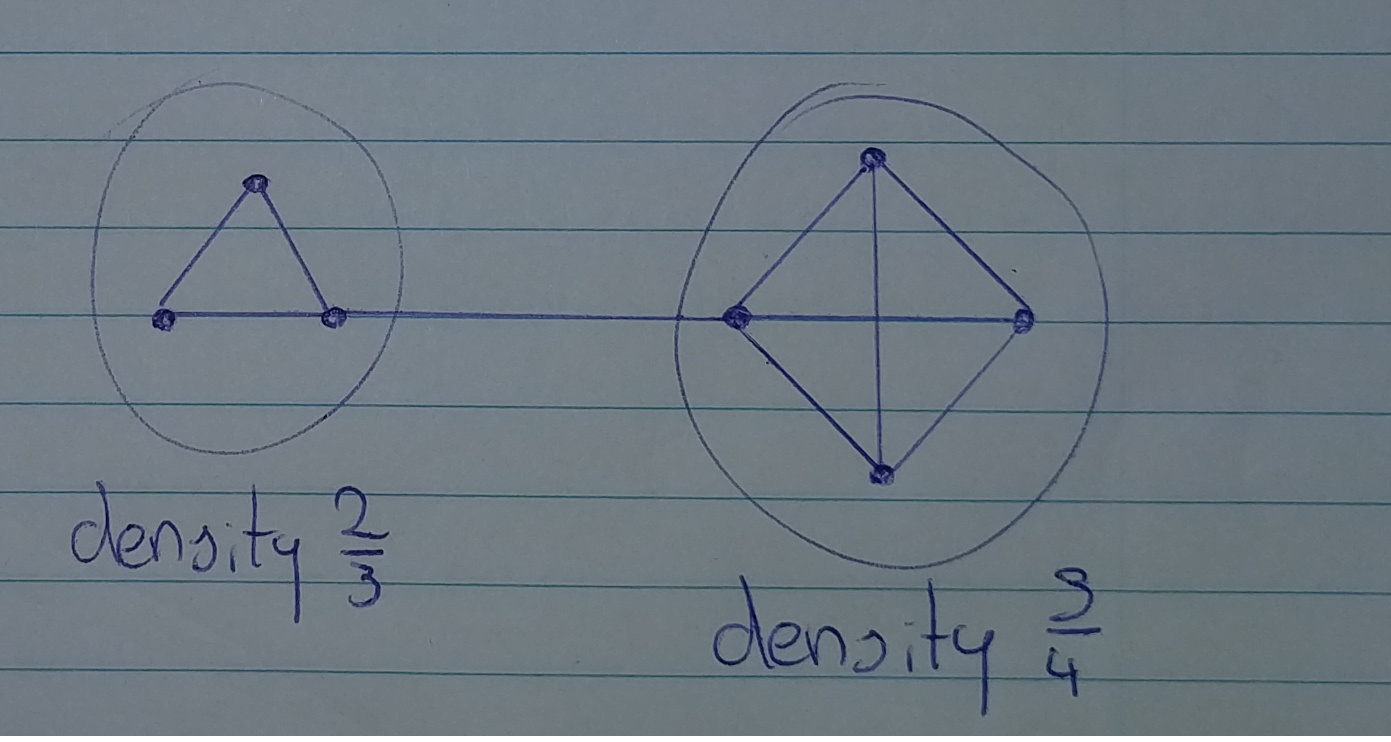 density 2/3
density 5/4